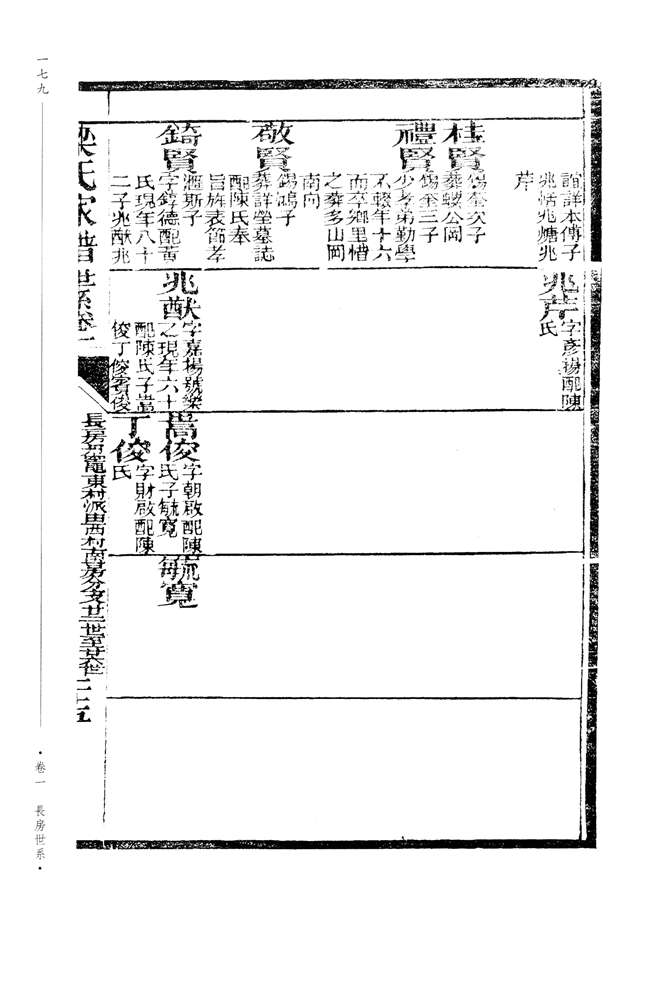 誼詳本傳子
兆恬兆煻兆
芹
桂賢
錫奎次子
葬螺公岡
禮賢
錫奎三子
少孝弟勤學
不輟年十六
而卒鄉里惜
之葬多山岡
南向
敬賢
錫鴻子
葬詳塋墓誌
配陳氏奉
旨旌表節孝
錡賢
滙斯子
字錞德配黃
氏現年八十
二子兆猷兆
兆芹
字彥揚配陳
氏
兆猷
字嘉揚號樂
之現年六十
配陳氏子嵩
俊丁俊賓俊
嵩俊
字朝啟配陳
氏子毓寬
丁俊
字財啟配陳
氏
毓寬
梁氏家譜
世系卷一
長房
東村派田西村南昌房分支廿三世至廿六世
二十五
一七九
卷一 長房世系